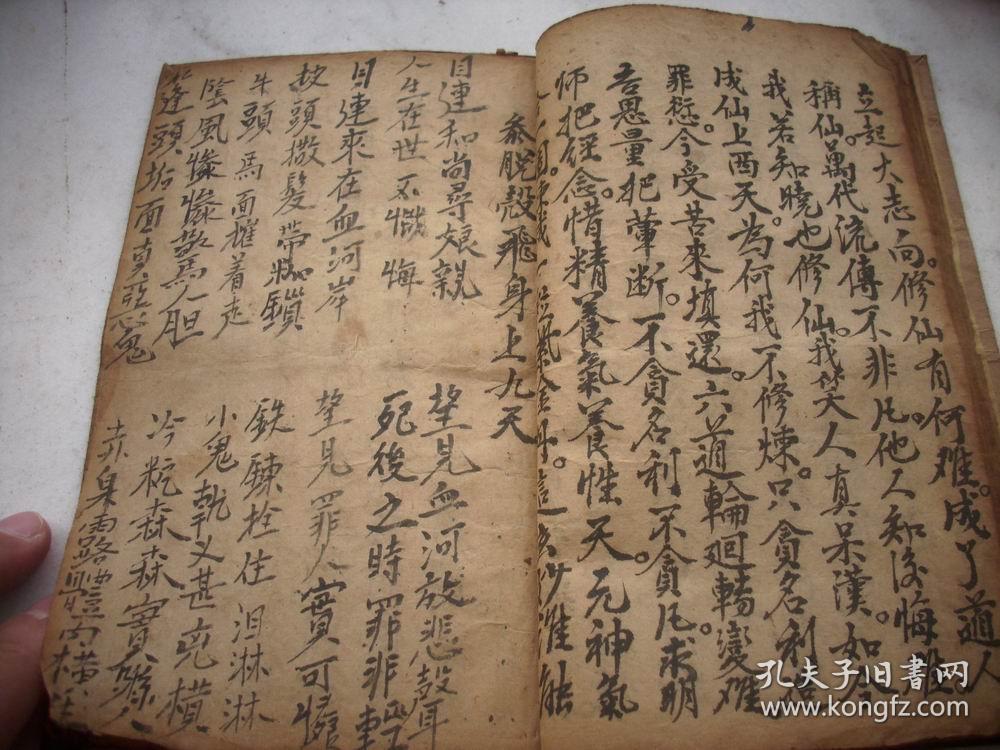 立起大志向。修仙有何难。成了道人
稱仙。萬代流傳不非凡。他人知後悔难
我若知曉也修仙。我笑人真呆漢。如
成仙上西天。為何我不修煉。只貪名利
罪愆。今受苦來填還。六道輪迴轉變难
吾思量把葷斷。不貪名利不貪凡求明
师把經念。惜精養氣養性天元神氣
脫殼飛身上九天
目連和尚尋娘親 望見血河放悲聲
人生在世不懺悔 死後之時罪非輕
目連來在血河岸 望見罪人實可憐
披頭撒髮帶枷鎖 鉄鍊拴住泪淋淋
牛頭馬面摧着走 小鬼執叉甚兇橫
陰風慘慘驚人胆 冷 森森實
蓬頭垢面真 鬼
孔夫子旧書网
www.kongfz.com